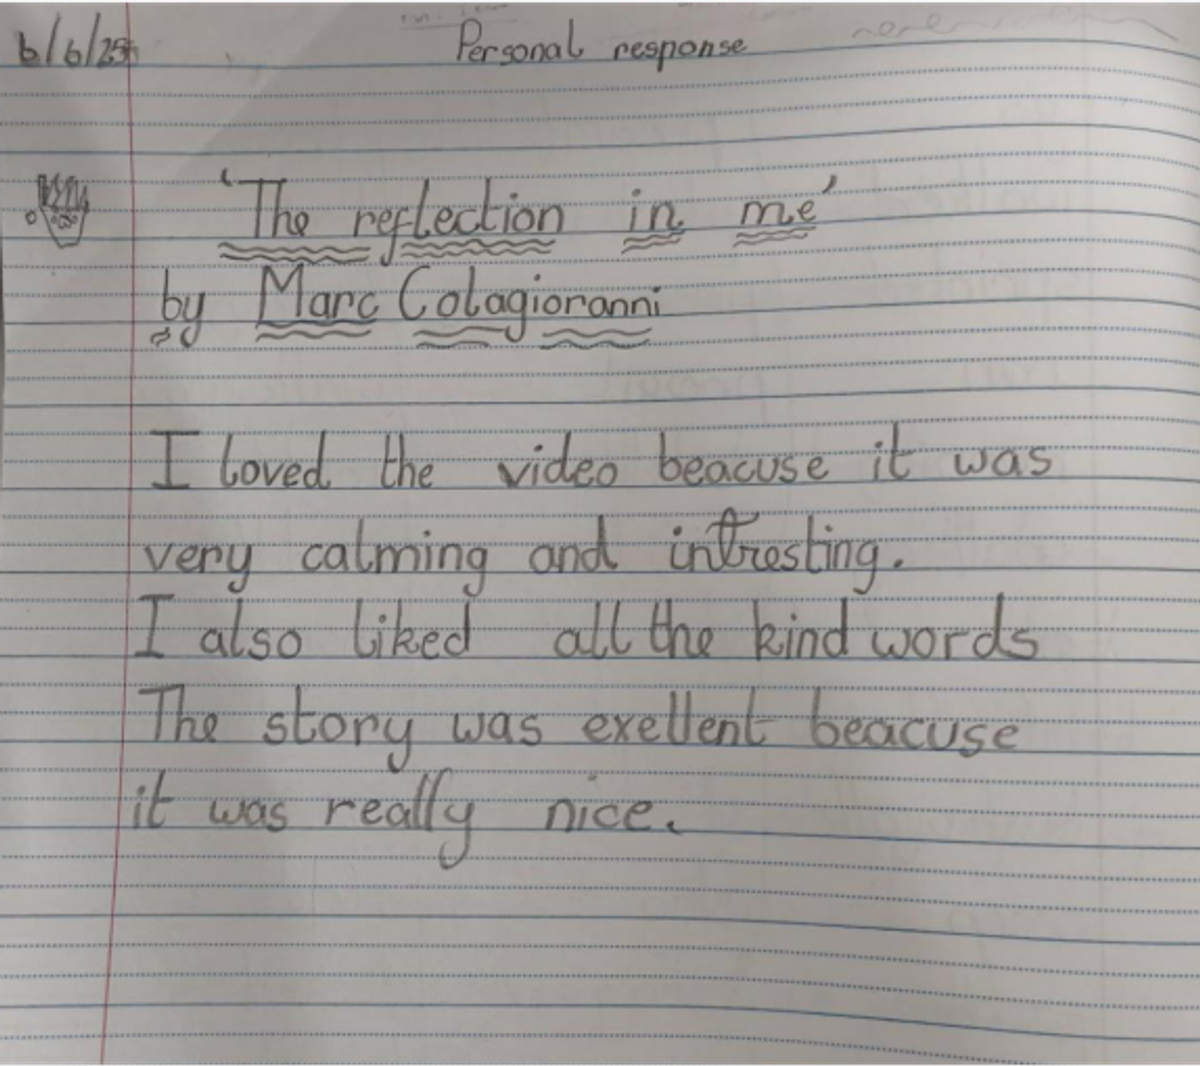 6/6/25
Personal response
'The reflection in me'
by Marc Colagioranni
I loved the video beacuse it was
very calming and intresting.
I also liked all the kind words
The story was exellent beacuse
it was really nice.